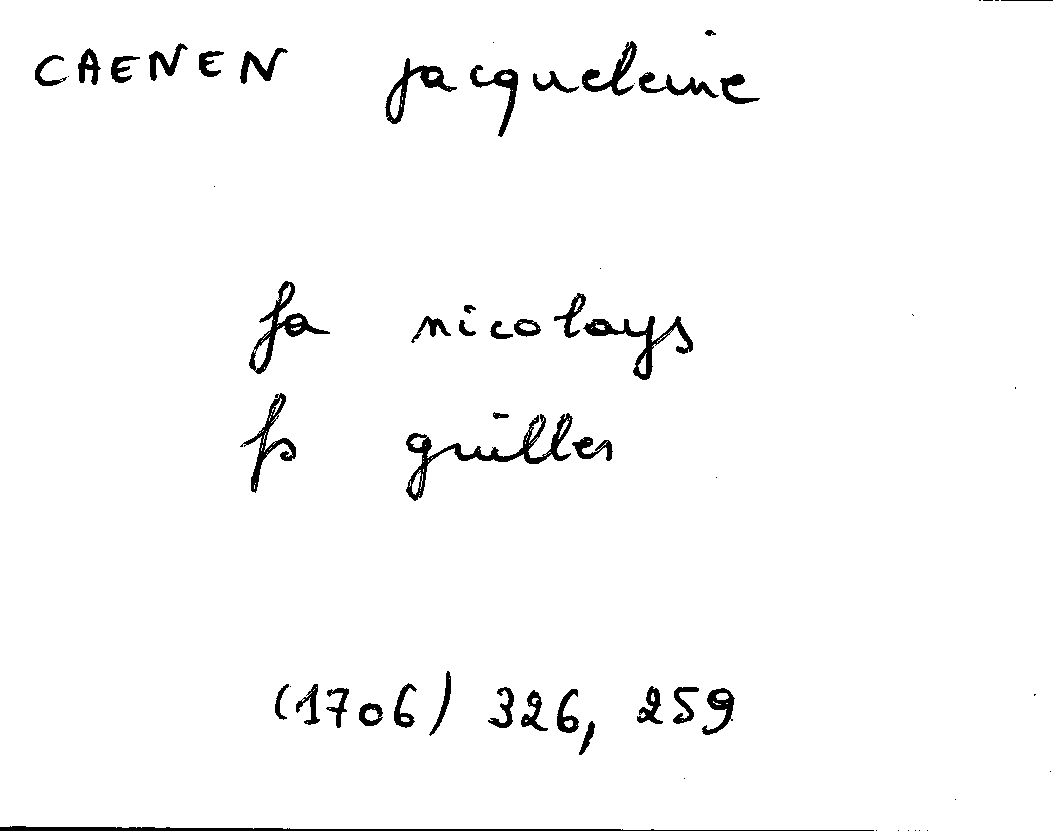 CAENEN jacqueleine
fa nicolays
fs guilles
(1706) 326, 259